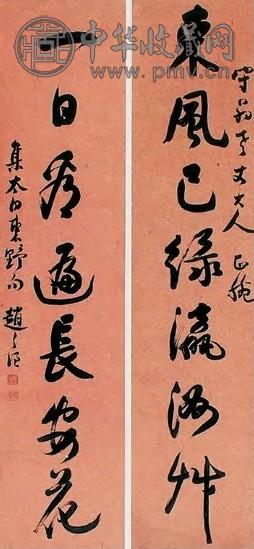 中华收藏网
www.pmv.cn
丈大人 正腕
東風已綠瀛洲艸
一日看遍長安花
集太白東野句 趙之